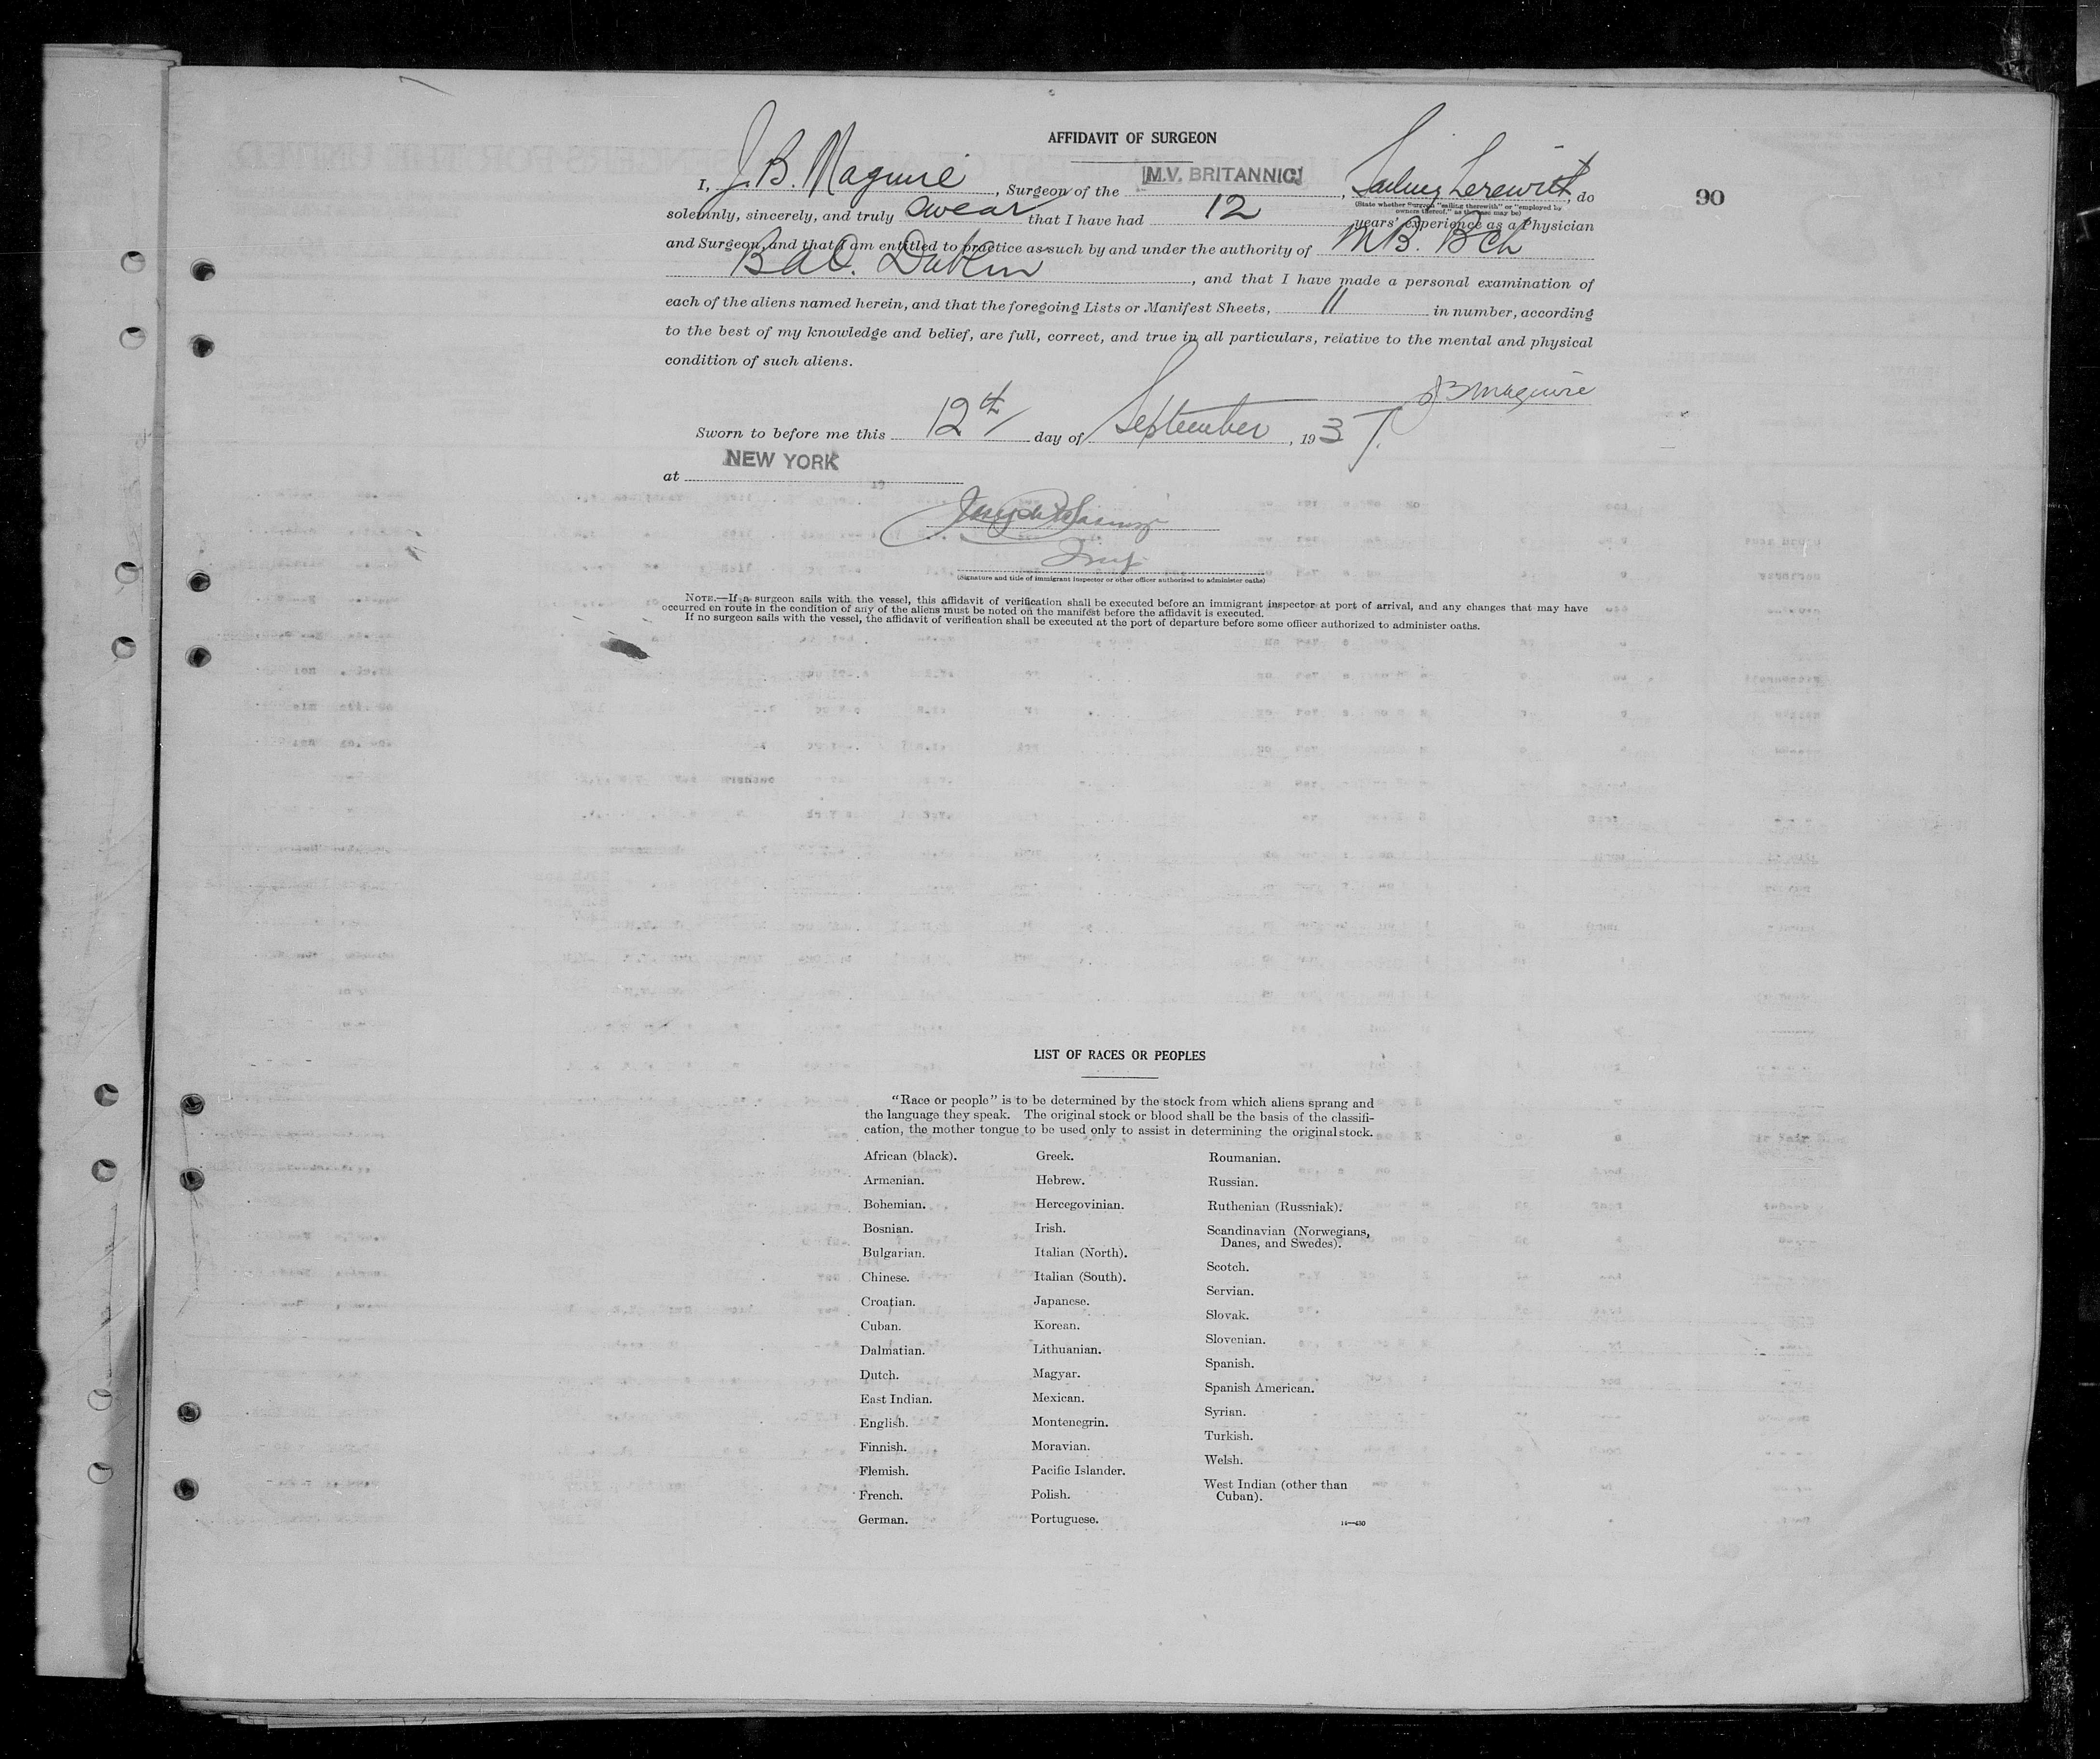 AFFIDAVIT OF SURGEON
90
I, J. B. Maguire, Surgeon of the M.V. BRITANNIC, Sailing therewith, do
(State whether "surgeon sailing therewith" or "employed by
owners thereof," as the case may be)
solemnly, sincerely, and truly swear that I have had 12 years' experience as a Physician
and Surgeon, and that I am entitled to practice as such by and under the authority of M.B. B Ch
B a O. Dublin, and that I have made a personal examination of
each of the aliens named herein, and that the foregoing Lists or Manifest Sheets, 11 in number, according
to the best of my knowledge and belief, are full, correct, and true in all particulars, relative to the mental and physical
condition of such aliens.
J B Maguire
Sworn to before me this 12th day of September, 1937.
at NEW YORK
19
Joseph
Insp
(Signature and title of immigrant inspector or other officer authorized to administer oaths)
NOTE.—If a surgeon sails with the vessel, this affidavit of verification shall be executed before an immigrant inspector at port of arrival, and any changes that may have
occurred en route in the condition of any of the aliens must be noted on the manifest before the affidavit is executed.
If no surgeon sails with the vessel, the affidavit of verification shall be executed at the port of departure before some officer authorized to administer oaths.
LIST OF RACES OR PEOPLES
"Race or people" is to be determined by the stock from which aliens sprang and
the language they speak. The original stock or blood shall be the basis of the classifi-
cation, the mother tongue to be used only to assist in determining the original stock.
African (black).
Armenian.
Bohemian.
Bosnian.
Bulgarian.
Chinese.
Croatian.
Cuban.
Dalmatian.
Dutch.
East Indian.
English.
Finnish.
Flemish.
French.
German.
Greek.
Hebrew.
Hercegovinian.
Irish.
Italian (North).
Italian (South).
Japanese.
Korean.
Lithuanian.
Magyar.
Mexican.
Montenegrin.
Moravian.
Pacific Islander.
Polish.
Portuguese.
Roumanian.
Russian.
Ruthenian (Russniak).
Scandinavian (Norwegians,
Danes, and Swedes).
Scotch.
Servian.
Slovak.
Slovenian.
Spanish.
Spanish American.
Syrian.
Turkish.
Welsh.
West Indian (other than
Cuban).
14—430